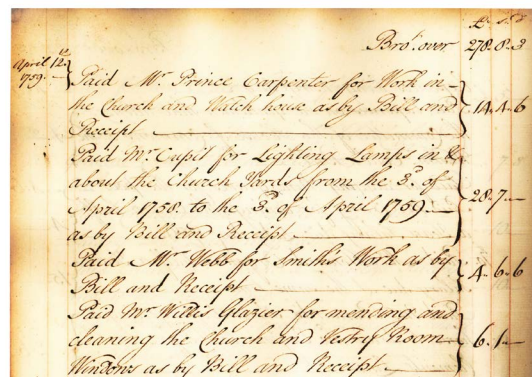 £. s. d
Bro.ᵗ over 278. 8. 3
April 12.th
1759.
Paid Mr. Prince Carpenter for Work in
the Church and Watch house as by Bill and
Receipt 14. 4. 6
Paid Mr. Cupit for Lighting Lamps in &
about the Church Yards from the 3.d of
April 1758. to the 3.d of April 1759.
as by Bill and Receipt 28. 7. —
Paid Mr. Webb for Smiths Work as by
Bill and Receipt 4. 6. 6
Paid Mr. Willis Glazier for mending and
cleaning the Church and Vestry Room
Windows as by Bill and Receipt 6. 1 —